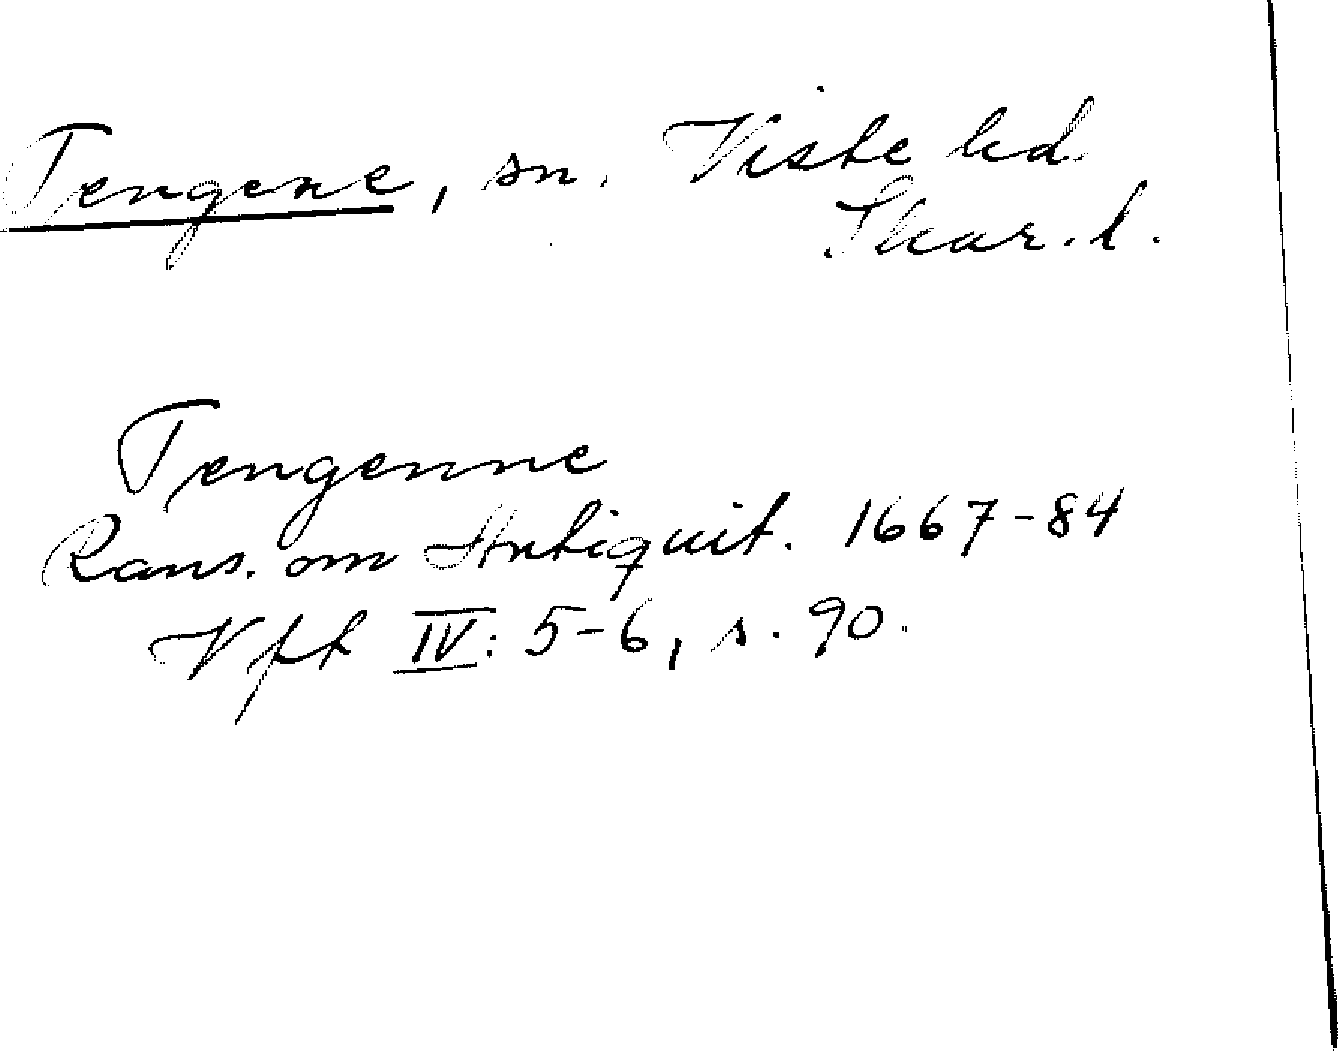 Tengene, sn. Viste hd.
Skar. l.
Tengenne
Rans. om Antiquit. 1667-84
Vfl IV: 5-6, s. 90.